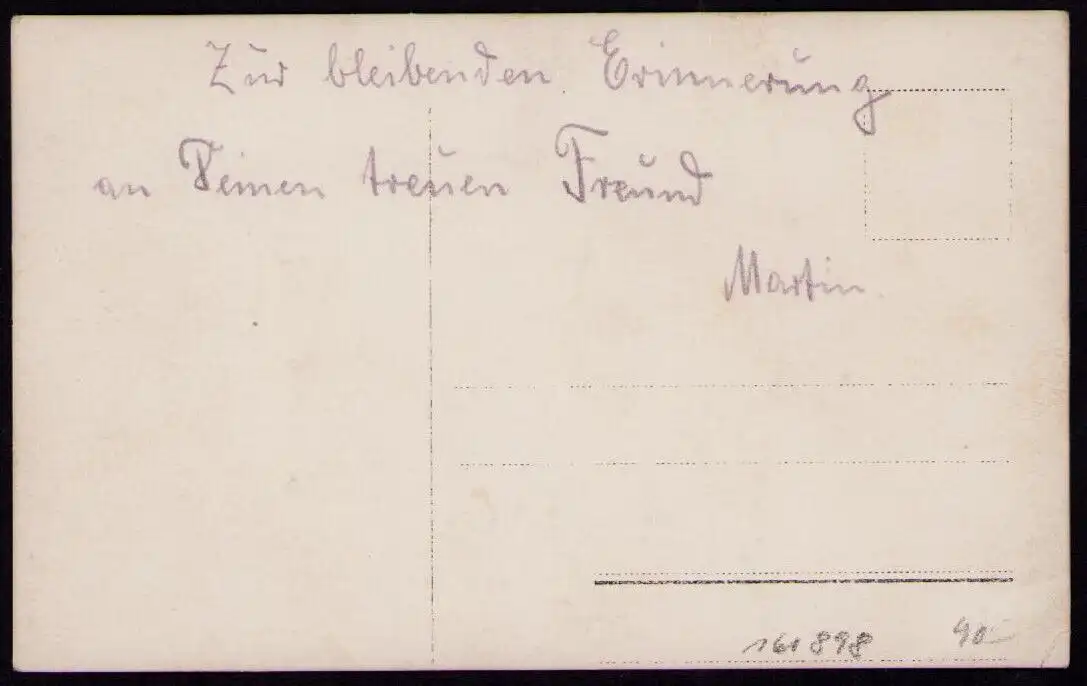 Zur bleibenden Erinnerung
an Deinen treuen Freund
Martin.
161898
40-